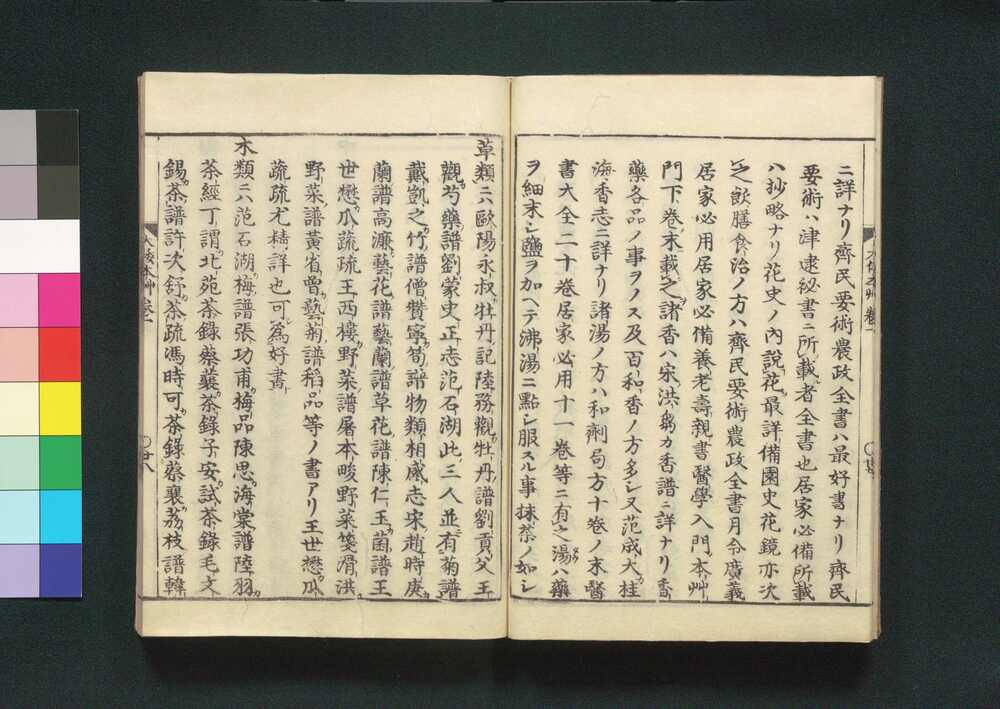 ニ詳ナリ齊民要術農政全書ハ最好書ナリ齊民
要術ハ津逮祕書ニ所載者全書也居家必備所載
ハ抄略ナリ花史ノ內說花最詳備園史花鏡亦次
之飲膳食治ノ方ハ齊民要術農政全書月令廣義
居家必用居家必備養老壽親書醫學入門本艸
門下卷末載之諸香ハ宋洪芻カ香譜ニ詳ナリ香
藥各品ノ事ヲノス及百和香ノ方多シ又范成大桂
海香志ニ詳ナリ諸湯ノ方ハ和劑局方十卷ノ末醫
書大全二十卷居家必用十一卷等ニ有之湯ハ藥
ヲ細末シ鹽ヲ加ヘテ沸湯ニ點シ服スル事抹茶ノ如シ
大倭本艸 卷一
草類ニハ歐陽永叔牡丹記陸務觀牡丹譜劉貢父王
觀芍藥譜劉蒙史正志范石湖此三人並有菊譜
戴凱之竹譜僧贊寧筍譜物類相感志宋趙時庚
蘭譜高濂藝花譜藝蘭譜草花譜陳仁玉菌譜王
世懋瓜蔬疏王西樓野菜譜屠本畯野菜箋滑洪
野菜譜黃省曾藝菊譜稻品等ノ書アリ王世懋瓜
蔬疏尤精詳也可為好書
木類ニハ范石湖梅譜張功甫梅品陳思海棠譜陸羽
茶經丁謂北苑茶錄蔡襄茶錄子安試茶錄毛文
錫茶譜許次舒茶疏馮時可茶錄蔡襄荔枝譜韓
大倭本艸 卷一 〇廿八